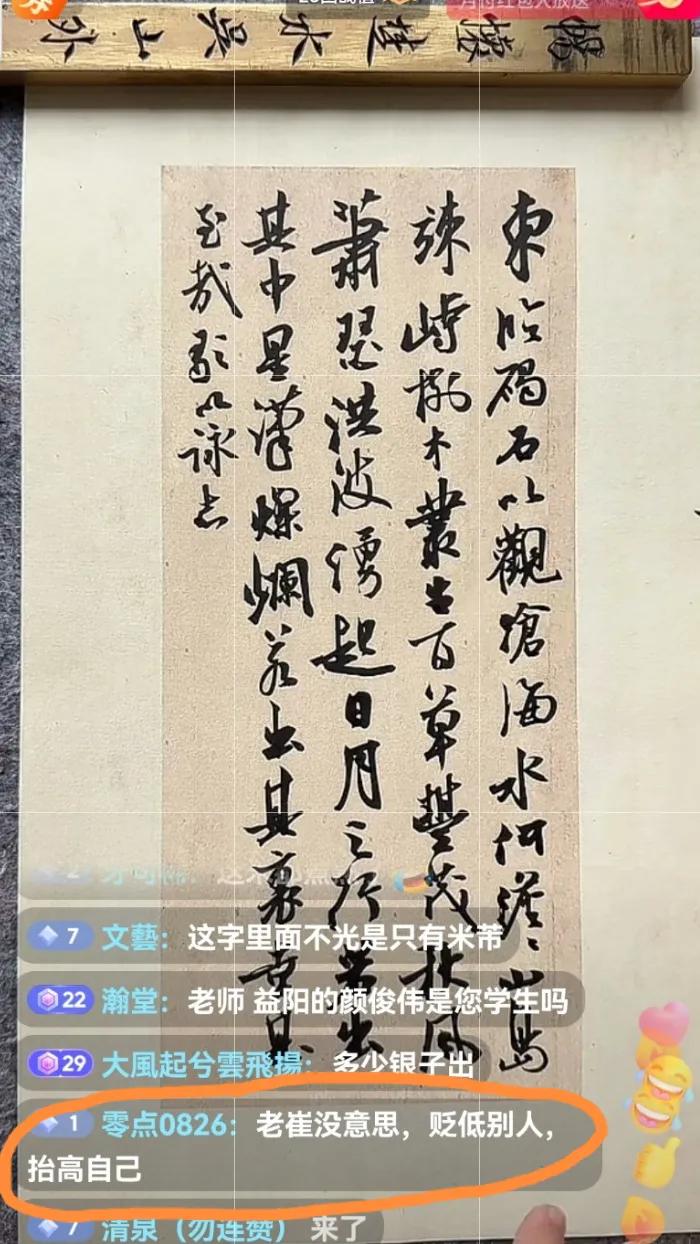 月付红包大放送
楚水吳山外
東臨碣石以觀滄海水何澹〻山島
竦峙樹木叢生百草豐茂秋風
蕭瑟洪波湧起日月之行若出
其中星漢燦爛若出其裏幸甚
至哉歌以詠志
7 文藝：这字里面不光是只有米芾
22 瀚堂：老师 益阳的颜俊伟是您学生吗
29 大風起兮雲飛揚：多少银子出
1 零点0826：老崔没意思，贬低别人，
抬高自己
7 清泉（勿连赞） 来了